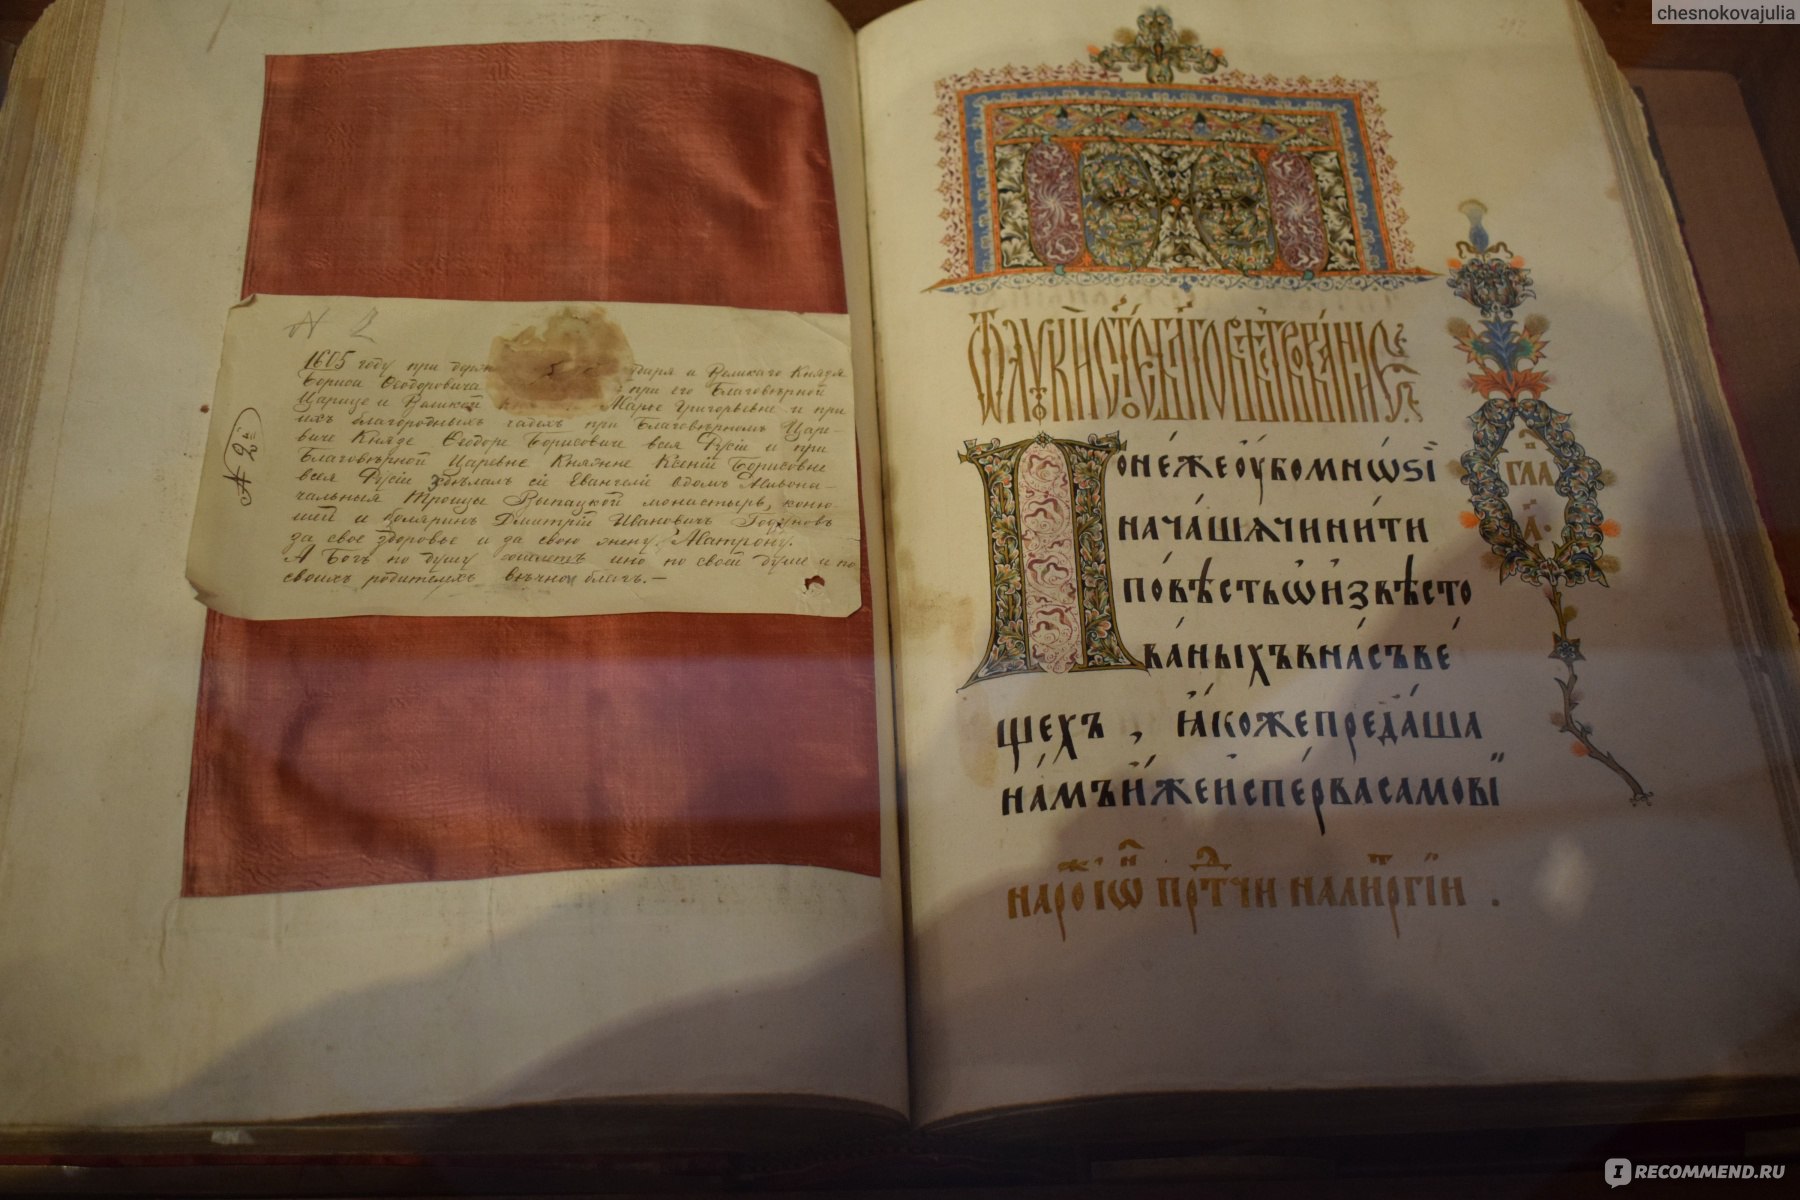 chesnokovajulia
N 2
1605 году при держ даря и Великаго Князя
Бориса Ѳеодоровича при его Благовѣрной
Царице и Великой Марье Григорьевне и при
ихъ благородныхъ чадехъ при Благовѣрномъ Царе-
виче Князе Ѳеодоре Борисовиче всея Русіи и при
Благовѣрной Царевне Княжне Ксеніи Борисовне
всея Русіи здѣлалъ сіе Евангеліе вдомъ Живона-
чальныя Троицы Выпацкой монастырь, коню-
шей и боляринъ Дмитрій Ивановичъ Годуновъ
за свое здоровье и за свою жену Матрону.
А Богъ по душу сошлетъ ино по своей души и по
своихъ родителехъ вѣчной благъ.—
297
ѿ луки стое бл҃говѣствованіе
Понеже оубо мноѕи
начаша чинити
повѣсть ѡ извѣсто
ванныхъ в насъ ве
щехъ, ꙗкоже предаша
намъ иже исперва самови
гла
а҃
на рожⷭ҇ іѡⷩ҇ прⷣтчи на лиⷮргіи.
IRECOMMEND.RU